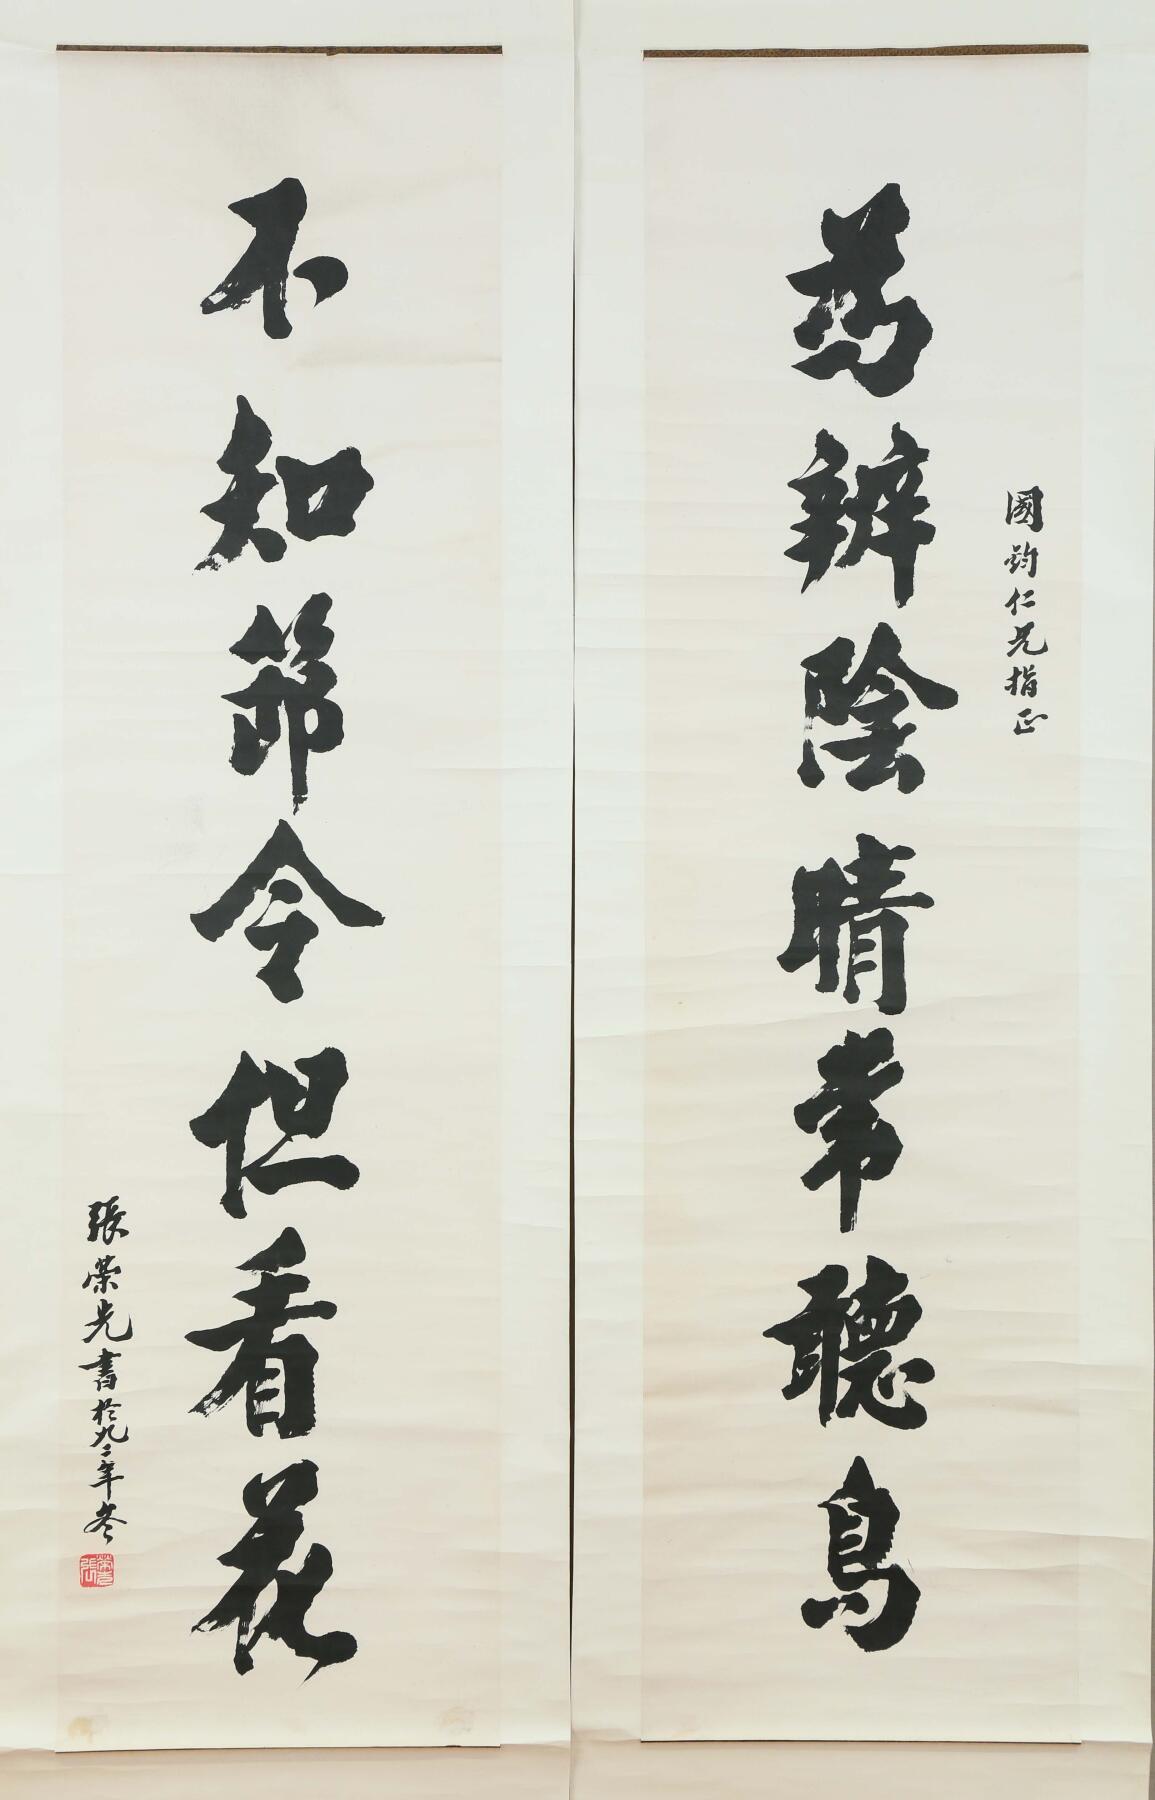 為辨陰晴常聽鳥
國鈞仁兄指正
不知節令但看花
張榮光書於九二年冬
張榮光